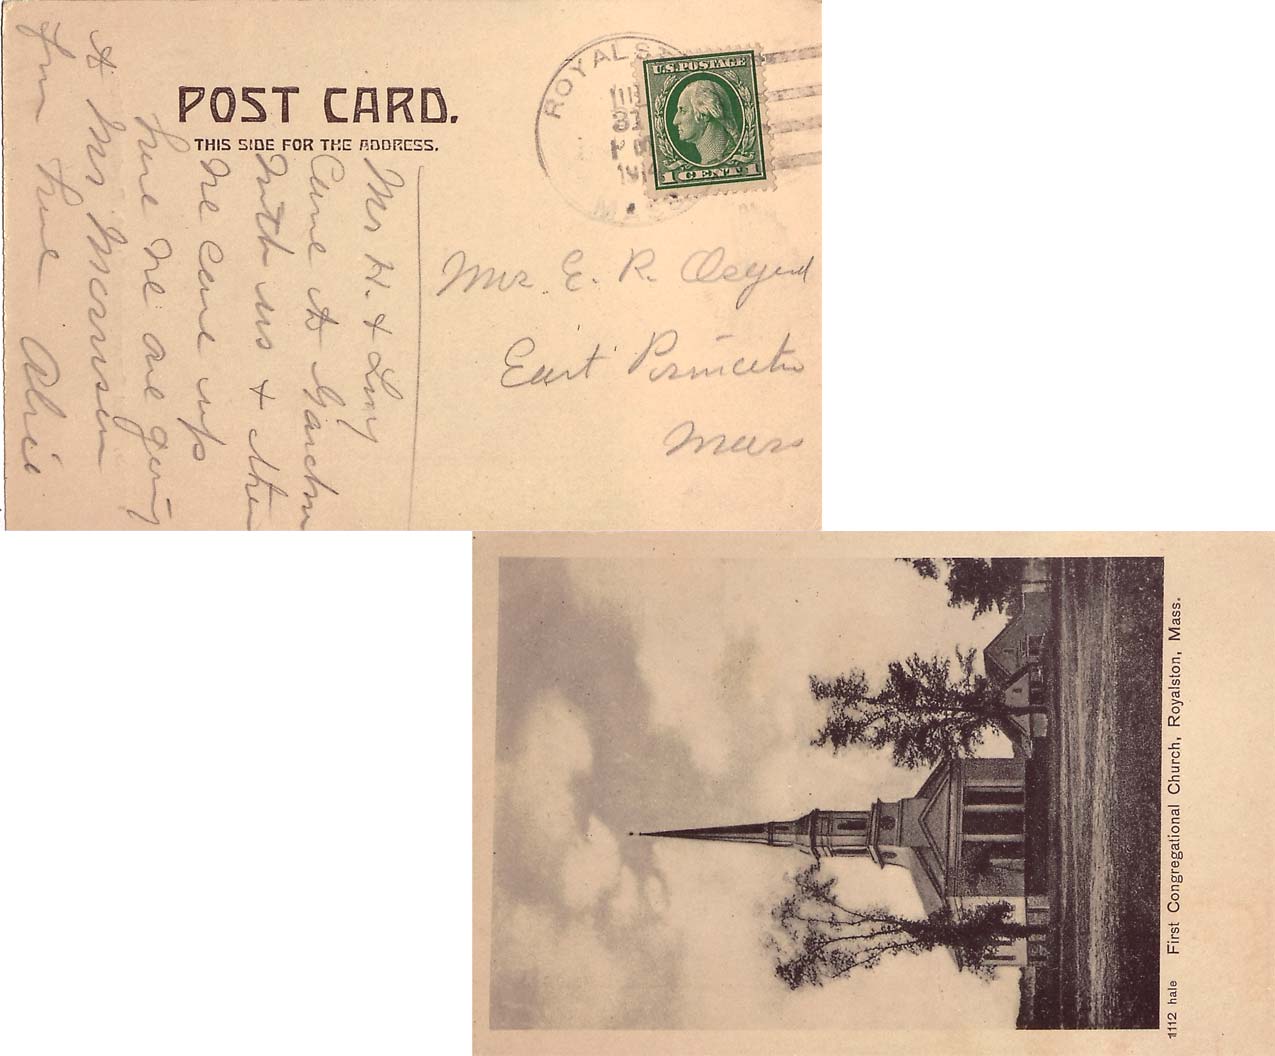 POST CARD.
THIS SIDE FOR THE ADDRESS.
ROYALS
MASS
31
191
U.S. POSTAGE
1 CENT 1
Mrs. E. R. Osgood
East Princeton
Mass
Mrs H. &
Came to Gardner
with us & then
We came up
here We are going
to Mrs
from here Alice
1112 hale First Congregational Church, Royalston, Mass.